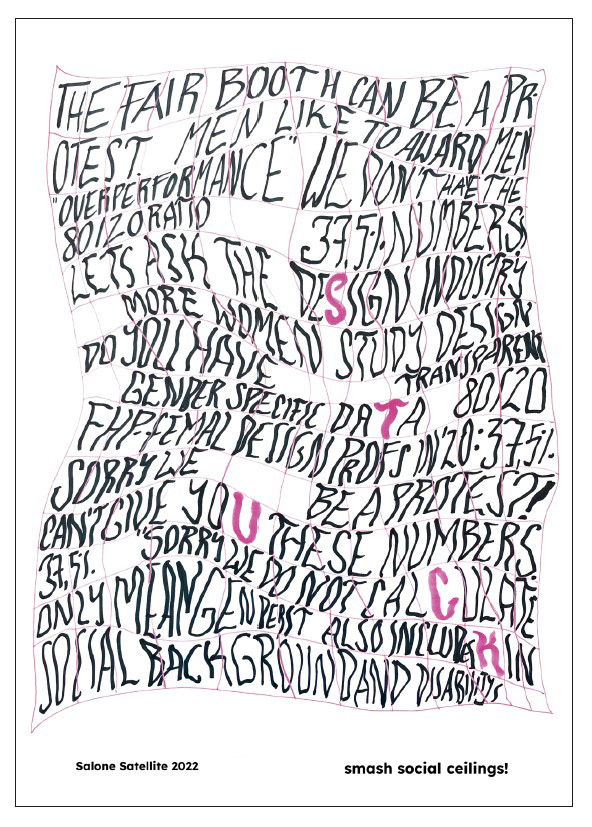 THE FAIR BOOTH CAN BE A PR-
OTEST MEN LIKE TO AWARD MEN
"OVERPERFORMANCE" WE DON'T HAVE THE
80/20 RATIO 37,5%. NUMBERS!
LETS ASK THE DESIGN INDUSTRY
MORE WOMEN STUDY DESIGN
DO YOU HAVE TRANSPARENT
GENDER SPECIFIC DATA 80/20
FHP-FEMAL DESIGN PROFS IN '20: 37,5%.
SORRY WE BE A PROTEST?!
CAN'T GIVE YOU THESE NUMBERS.
37,5%. "SORRY WE DO NOT CALCULATE
ONLY MEAN GENDER IT ALSO INCLUDES IN
SOCIAL BACKGROUND AND DISABILITYS
Salone Satellite 2022
smash social ceilings!